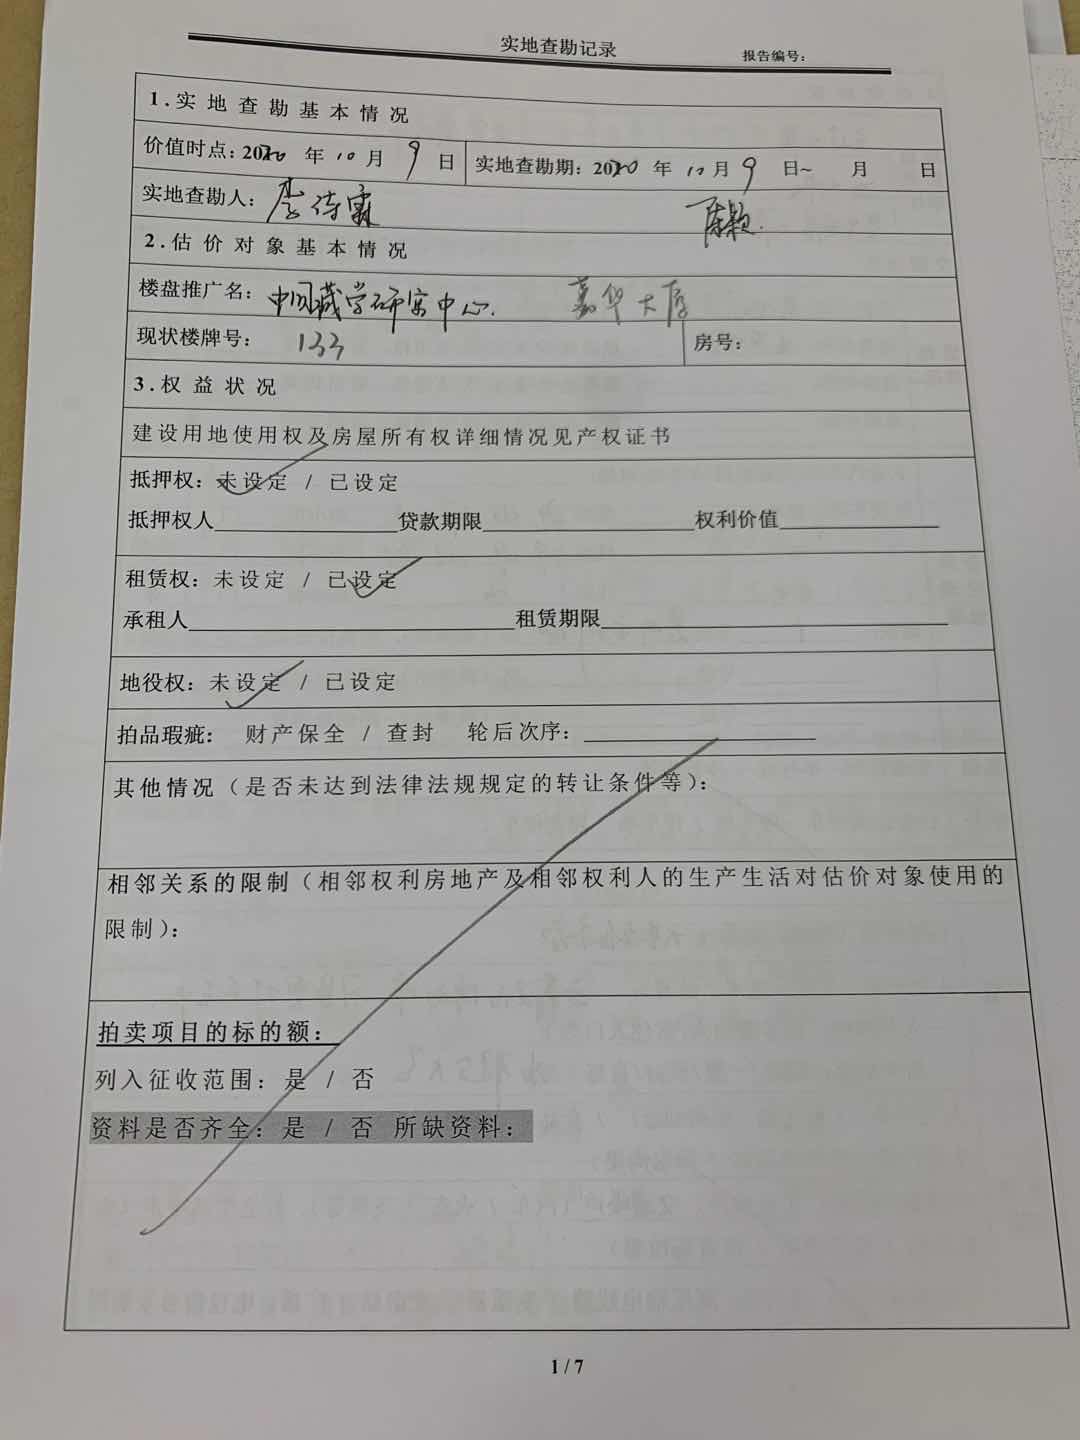 实地查勘记录 报告编号：
1.实地查勘基本情况
价值时点：2020 年 10 月 9 日 实地查勘期：2020 年 10 月 9 日~ 月 日
实地查勘人：李诗霖 陈颖
2.估价对象基本情况
楼盘推广名：中国藏学研究中心. 嘉华大厦
现状楼牌号：133 房号：
3.权益状况
建设用地使用权及房屋所有权详细情况见产权证书
抵押权：未设定 / 已设定
抵押权人 贷款期限 权利价值
租赁权：未设定 / 已设定
承租人 租赁期限
地役权：未设定 / 已设定
拍品瑕疵： 财产保全 / 查封 轮后次序：
其他情况（是否未达到法律法规规定的转让条件等）：
相邻关系的限制（相邻权利房地产及相邻权利人的生产生活对估价对象使用的
限制）：
拍卖项目的标的额：
列入征收范围：是 / 否
资料是否齐全：是 / 否 所缺资料：
1 / 7